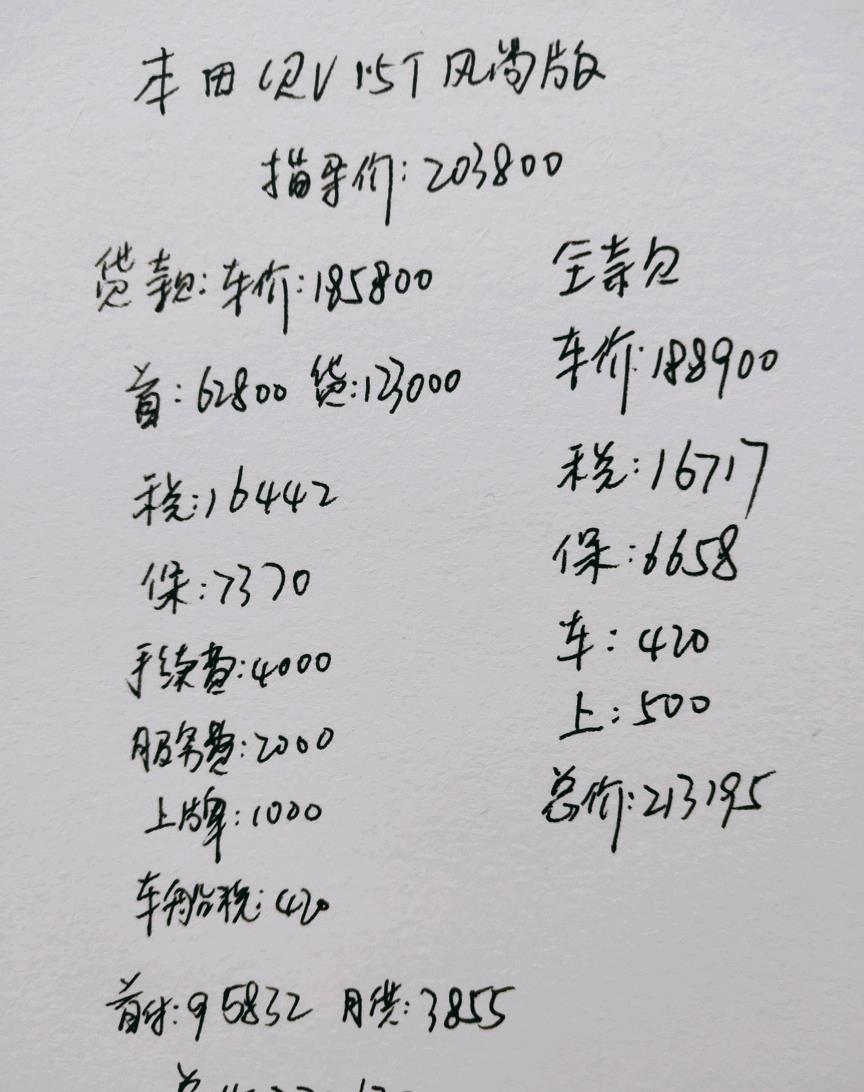 本田CRV 1.5T 风尚版
指导价:203800
贷款:车价:185800
首:62800 贷:123000
税:16442
保:7370
手续费:4000
服务费:2000
上牌:1000
车船税:420
首付:95832 月供:3855
全款
车价:188900
税:16717
保:6658
车:420
上:500
总价:213195